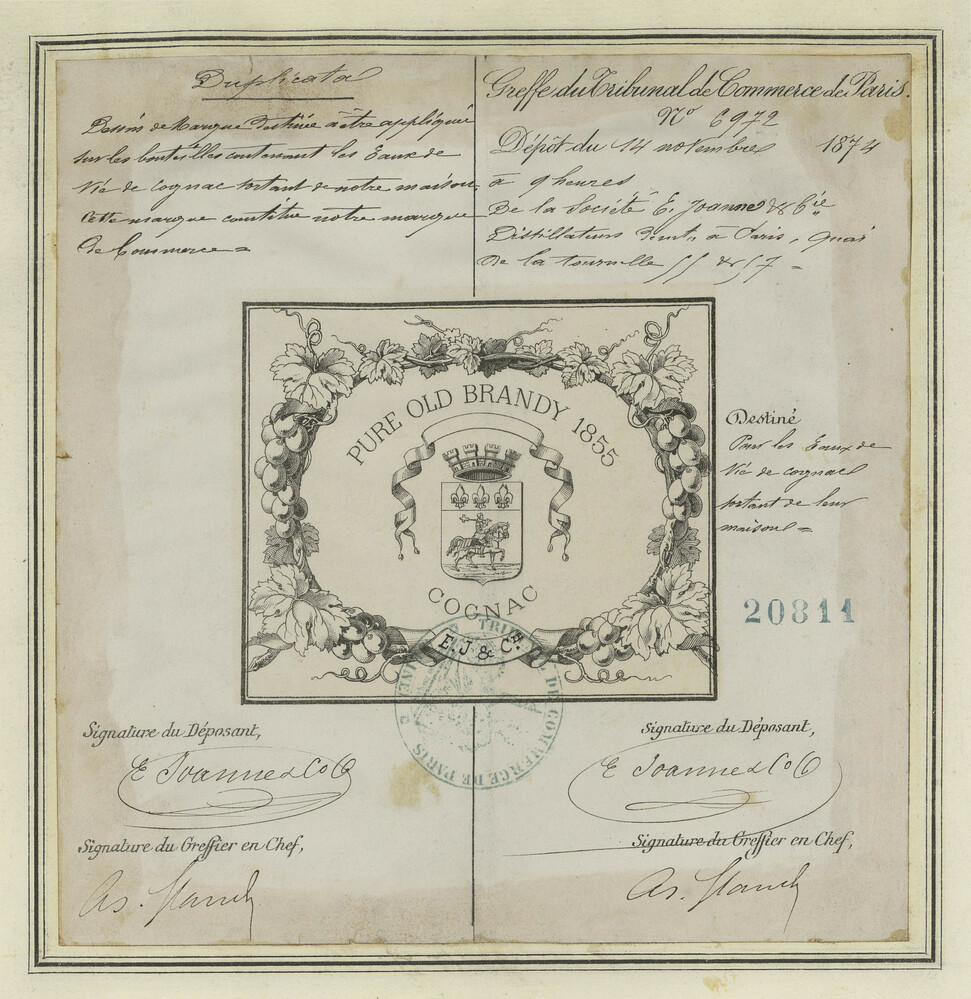 Duplicata
Dessin de Marque Destinée à être appliquée
sur les bouteilles contenant les Eaux de
Vie de Cognac sortant de notre maison
Cette marque constitue notre marque
de Commerce =
Greffe du Tribunal de Commerce de Paris.
No 6972
Dépôt du 14 novembre 1874
à 9 heures
De la Société E. Joanne & Cie
Distillateurs demt. à Paris, Quai
de la tournelle 55 & 57 =
PURE OLD BRANDY 1855
COGNAC
E. J & Cie
Destiné
Pour les Eaux de
Vie de cognac
sortant de leur
maison =
20811
TRIBUNAL DE COMMERCE DE PARIS
Signature du Déposant,
E Joanne & Co
Signature du Greffier en Chef,
Signature du Déposant,
E Joanne & Co
Signature du Greffier en Chef,